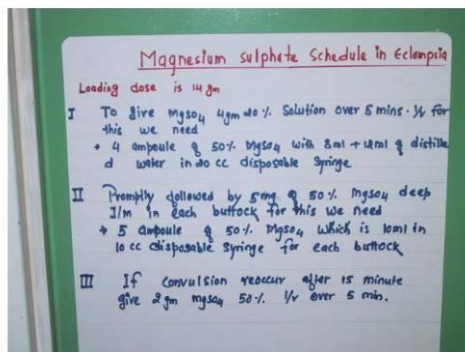 Magnesium sulphate Schedule in Eclampsia
Loading dose is 14 gm
I To give mgso4 4gm 20% Solution over 5 mins. I/v for
this we need
→ 4 ampoule of 50% mgso4 with 8ml + 12ml of distille
d water in 20 cc disposable syringe
II Promptly followed by 5mg of 50% mgso4 deep
I/m in each buttock for this we need
→ 5 ampoule of 50% mgso4 which is 10ml in
10 cc disposable syringe for each buttock
III If convulsion reoccur after 15 minute
give 2gm mgso4 50% I/v over 5 min.